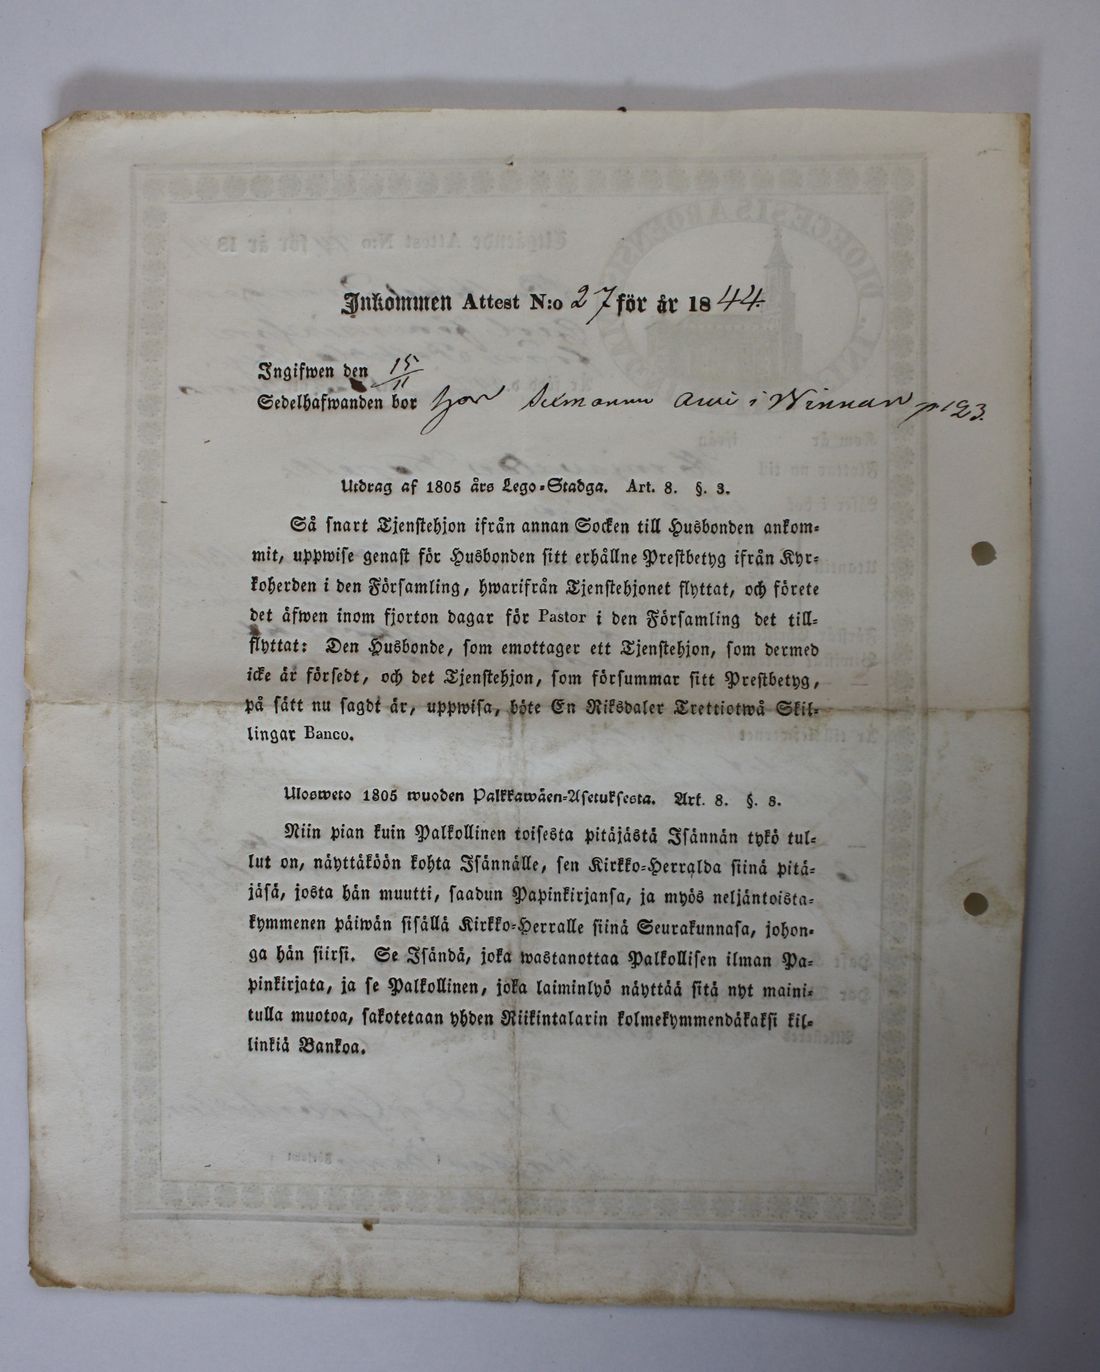 Inkommen Attest N:o 27 för år 1844.
Ingifwen den 15/11
Sedelhafwanden bor hos i Winnar p 123.
Utdrag af 1805 års Lego-Stadga. Art. 8. §. 3.
Så snart Tjenstehjon ifrån annan Socken till Husbonden ankom-
mit, uppwise genast för Husbonden sitt erhållne Prestbetyg ifrån Kyr-
koherden i den Församling, hwarifrån Tjenstehjonet flyttat, och förete
det äfwen inom fjorton dagar för Pastor i den Församling det till-
flyttat: Den Husbonde, som emottager ett Tjenstehjon, som dermed
icke är försedt, och det Tjenstehjon, som försummar sitt Prestbetyg,
på sätt nu sagdt är, uppwisa, böte En Riksdaler Trettiotwå Skil-
lingar Banco.
Ulosweto 1805 wuoden Palkkawäen-Asetuksesta. Art. 8. §. 8.
Niin pian kuin Palkollinen toisesta pitäjästä Isännän tykö tul-
lut on, näyttäköön kohta Isännälle, sen Kirkko-Herralda siinä pitä-
jäsä, josta hän muutti, saadun Papinkirjansa, ja myös neljäntoista-
kymmenen päiwän sisällä Kirkko-Herralle siinä Seurakunnasa, johon-
ga hän siirsi. Se Isändä, joka wastanottaa Palkollisen ilman Pa-
pinkirjata, ja se Palkollinen, joka laiminlyö näyttää sitä nyt maini-
tulla muotoa, sakotetaan yhden Riikintalarin kolmekymmendäkaksi kil-
linkiä Bankoa.